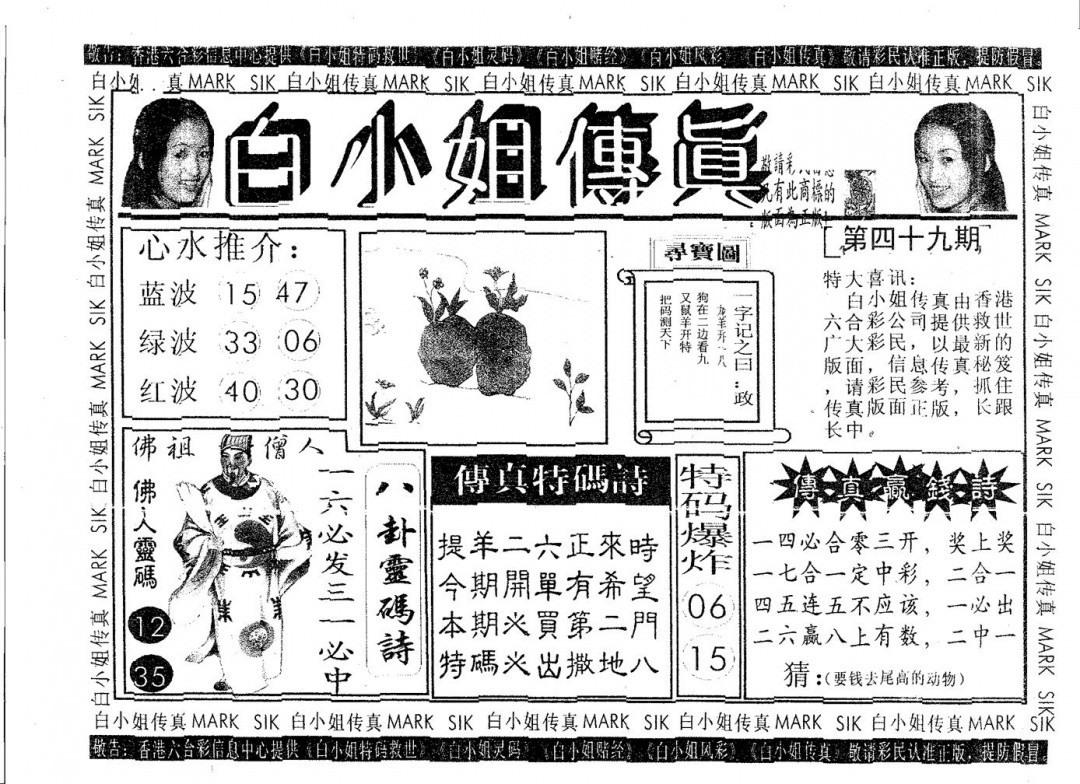 敬告：香港六合彩信息中心提供《白小姐特码救世》《白小姐灵码》《白小姐赌经》《白小姐风彩》《白小姐传真》敬请彩民认准正版，提防假冒
白小姐 真MARK SIK 白小姐传真MARK SIK 白小姐传真MARK SIK 白小姐传真MARK SIK 白小姐传真MARK SIK
白小姐傳眞
敬請彩
凡有此商標的
版面為正版
第四十九期
心水推介：
蓝波 15 47
绿波 33 06
红波 40 30
尋寶圖
一字记之曰：政
龙羊开一八
狗在二边看九
又鼠羊开特
把码测天下
特大喜讯：
白小姐传真由香港
六合彩公司提供救世
广大彩民，以最新的
版面，信息传真秘笈
，请彩民参考，抓住
传真版面正版，长跟
长中。
佛祖 僧人
佛人靈碼
12
35
一六必发三一必中
八卦靈碼詩
傳真特碼詩
時望門八
來希二地
正有第撒
六單買出
二開火火
羊期期碼
提今本特
特码爆炸
06
15
傳真贏錢詩
一四必合零三开，奖上奖
一七合一定中彩，二合一
四五连五不应该，一必出
二六赢八上有数，二中一
猜：(要钱去尾高的动物)
SIK 白小姐传真 MARK SIK 白小姐传真 MARK SIK 白小姐传真 MARK SIK 白小姐传真 MARK
白小姐传真 MARK SIK 白小姐传真 MARK SIK 白小姐传真 MARK SIK 白小姐传真 MARK SIK
白小姐传真MARK SIK 白小姐传真MARK SIK 白小姐传真MARK SIK 白小姐传真MARK SIK 白小姐传真MARK SIK
敬告：香港六合彩信息中心提供《白小姐特码救世》《白小姐灵码》《白小姐赌经》《白小姐风彩》《白小姐传真》敬请彩民认准正版，提防假冒。